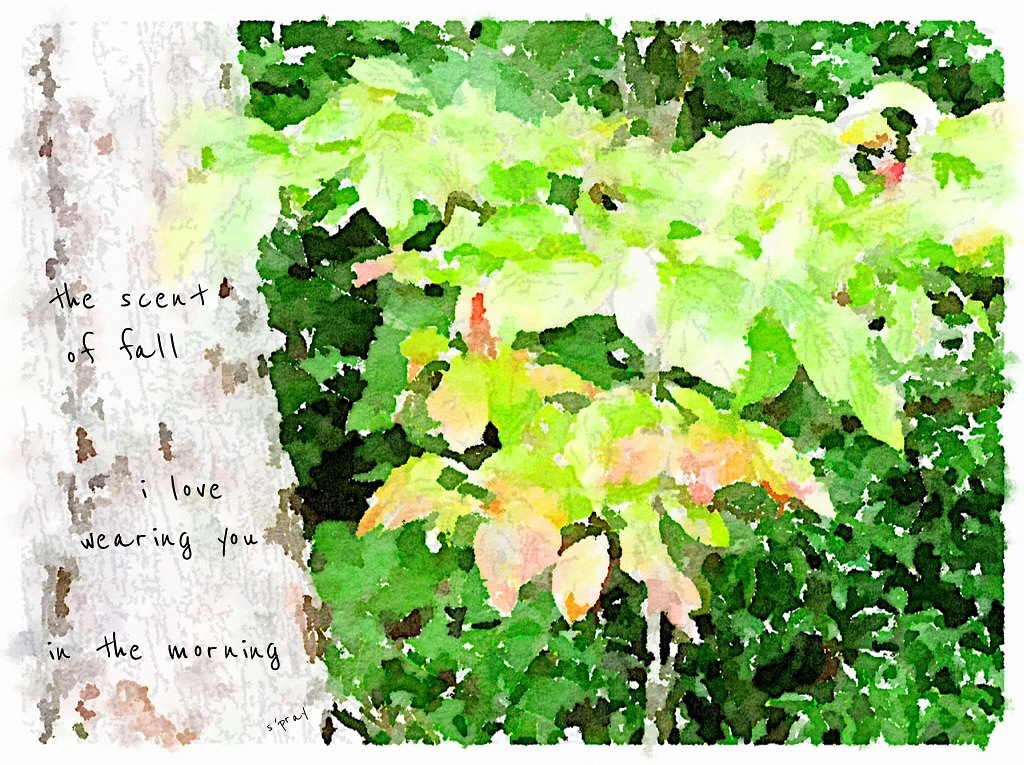 the scent
of fall
i love
wearing you
in the morning
s'pray